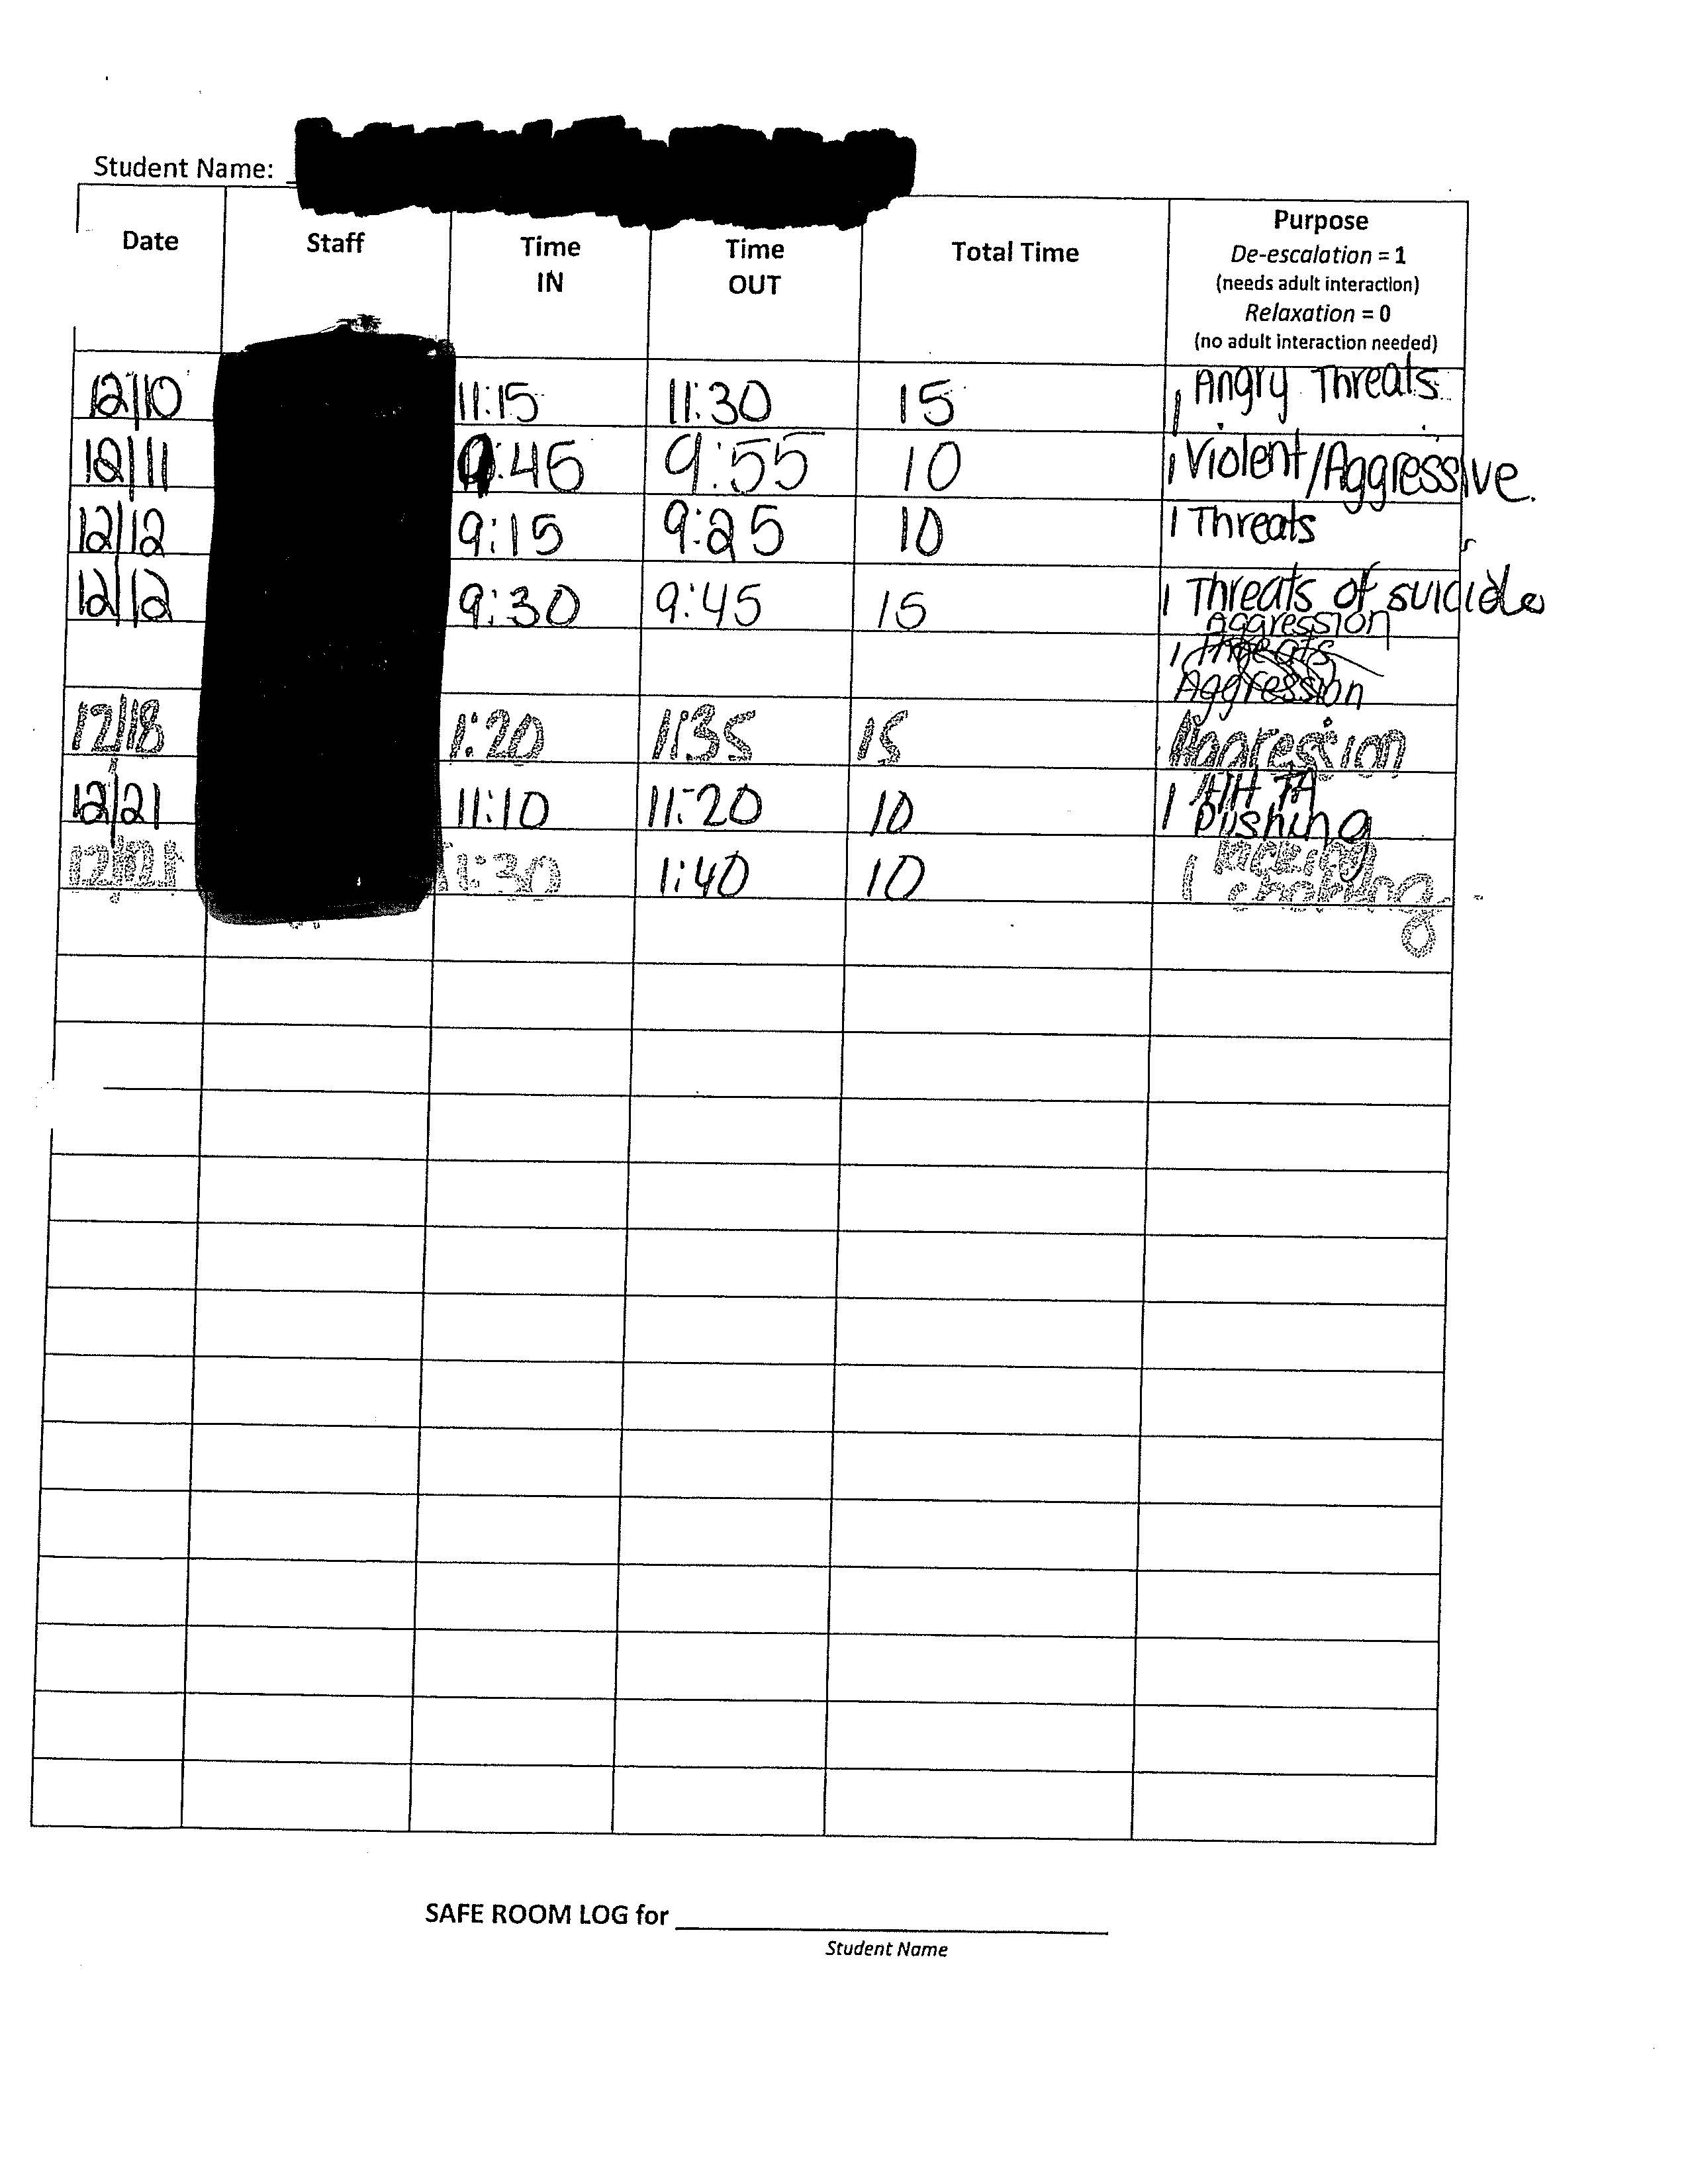 Student Name:
Date Staff Time IN Time OUT Total Time Purpose
De-escalation = 1
(needs adult interaction)
Relaxation = 0
(no adult interaction needed)
12/10 11:15 11:30 15 1 Angry Threats
12/11 9:45 9:55 10 1 Violent/Aggressive.
12/12 9:15 9:25 10 1 Threats
12/12 9:30 9:45 15 1 Threats of suicide
Aggression
1 Threats
Aggression
12/18 1:20 1:35 15 Aggression
12/21 11:10 11:20 10 1 Hit TA
pushing
12/21 1:30 1:40 10 1 kicking
SAFE ROOM LOG for
Student Name